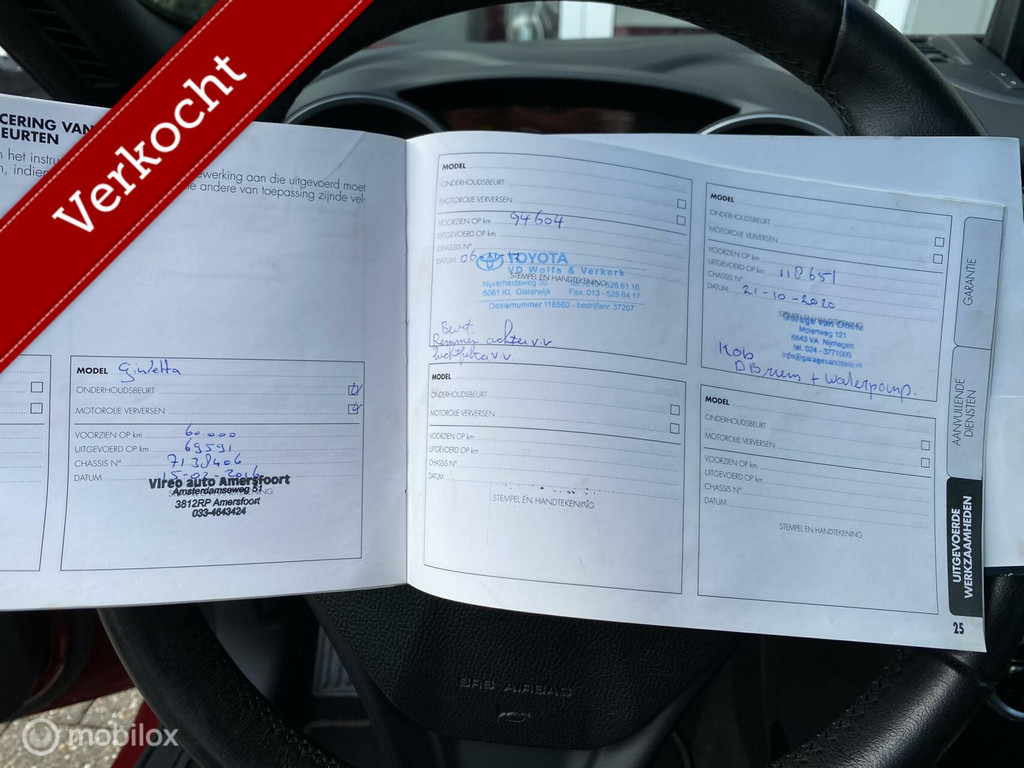 Verkocht
CERING VAN
EURTEN
n het instru
n, indien
ewerking aan die uitgevoerd moet
ie andere van toepassing zijnde vel-
MODEL Giulietta
ONDERHOUDSBEURT
MOTOROLIE VERVERSEN
VOORZIEN OP km 60.000
UITGEVOERD OP km 69591
CHASSIS N° 7138406
DATUM 15-02-2016
Vireo auto Amersfoort
Amsterdamseweg 51
3812RP Amersfoort
033-4643424
MODEL
ONDERHOUDSBEURT
MOTOROLIE VERVERSEN
VOORZIEN OP km 94604
UITGEVOERD OP km
CHASSIS N°
DATUM
TOYOTA
VD Wolfs & Verkerk
STEMPEL EN HANDTEKENING
Nijverheidsweg 30 Tel.: 013-528 61 16
5061 KL Oisterwijk Fax: 013-528 64 17
Dealernummer 116560 - bedrijfsnr. 37207
Beurt
Remmen achter v.v
luchtfilter v.v
MODEL
ONDERHOUDSBEURT
MOTOROLIE VERVERSEN
VOORZIEN OP km
UITGEVOERD OP km
CHASSIS N°
DATUM
STEMPEL EN HANDTEKENING
MODEL
ONDERHOUDSBEURT
MOTOROLIE VERVERSEN
VOORZIEN OP km
UITGEVOERD OP km 118651
CHASSIS N°
DATUM 21-10-2020
STEMPEL EN HANDTEKENING
Garage van
Molenweg 121
6543 VA Nijmegen
tel. 024 - 3771009
Kob
DBriem + Waterpomp.
MODEL
ONDERHOUDSBEURT
MOTOROLIE VERVERSEN
VOORZIEN OP km
UITGEVOERD OP km
CHASSIS N°
DATUM
STEMPEL EN HANDTEKENING
GARANTIE
AANVULLENDE
DIENSTEN
UITGEVOERDE
WERKZAAMHEDEN
25
SRS AIRBAG
mobilox